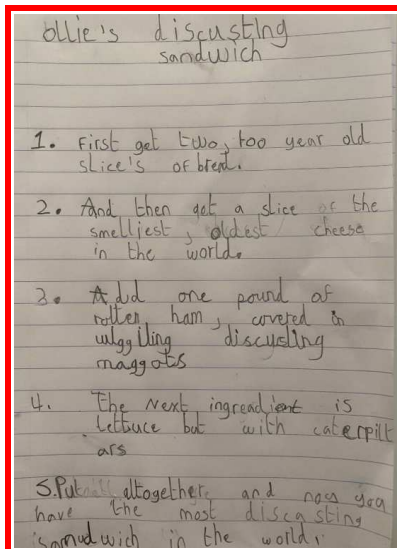 ollie's discusting
sandwich
1. First get two, too year old
slice's of bread.
2. And then get a slice of the
smelliest, oldest cheese
in the world.
3. Add one pound of
rotten ham, covered in
wiggiling discusting
maggots
4. The Next ingreadient is
lettuce but with caterpill
ars
5. Put altogether and now you
have the most discasting
sandwich in the world!